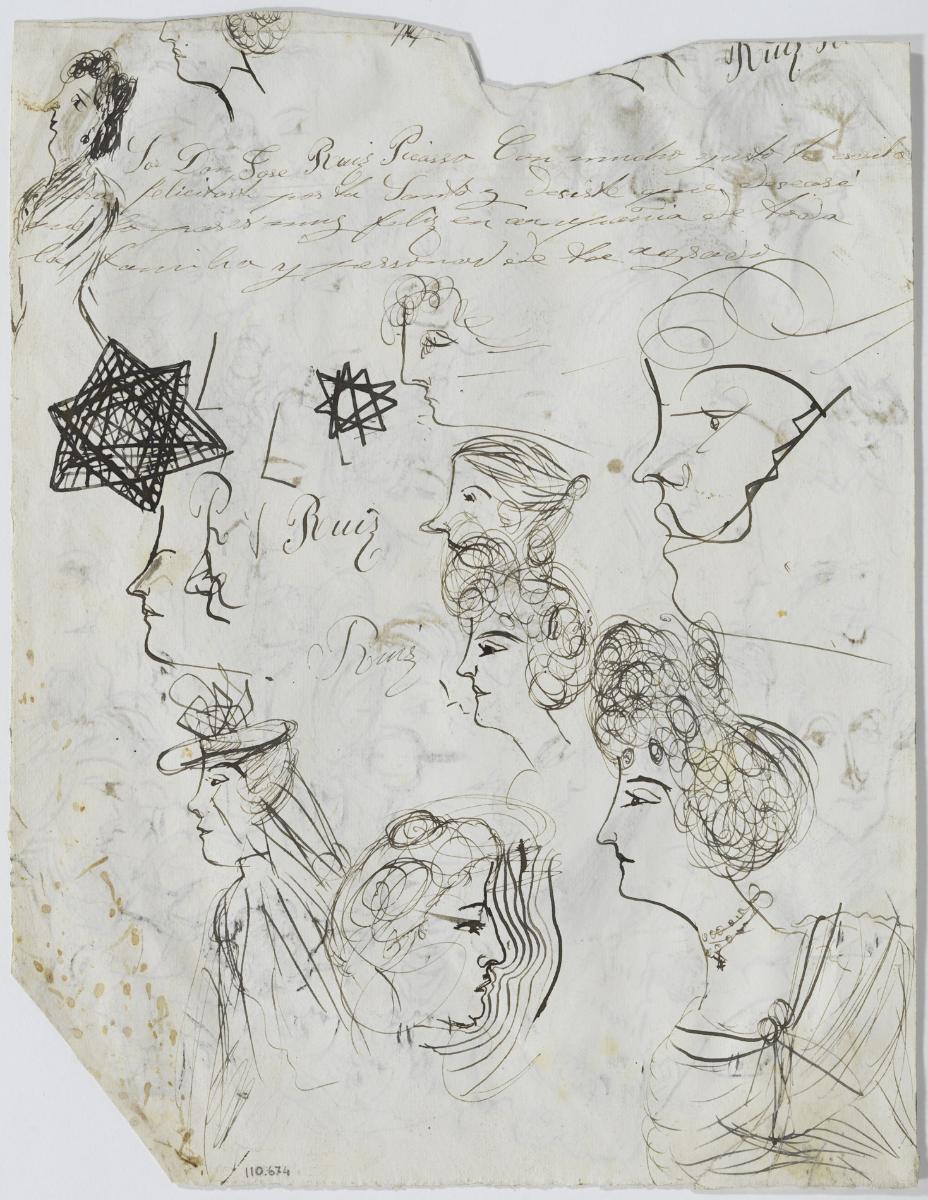 Ruiz
Sor Don Jose Ruiz Picasso Con mucho gusto te escribo
felicitarte por tu Santo y deseo que
lo pases muy feliz en compañia de toda
la familia y personas de tu agrado
Ruiz
Ruiz
110.674